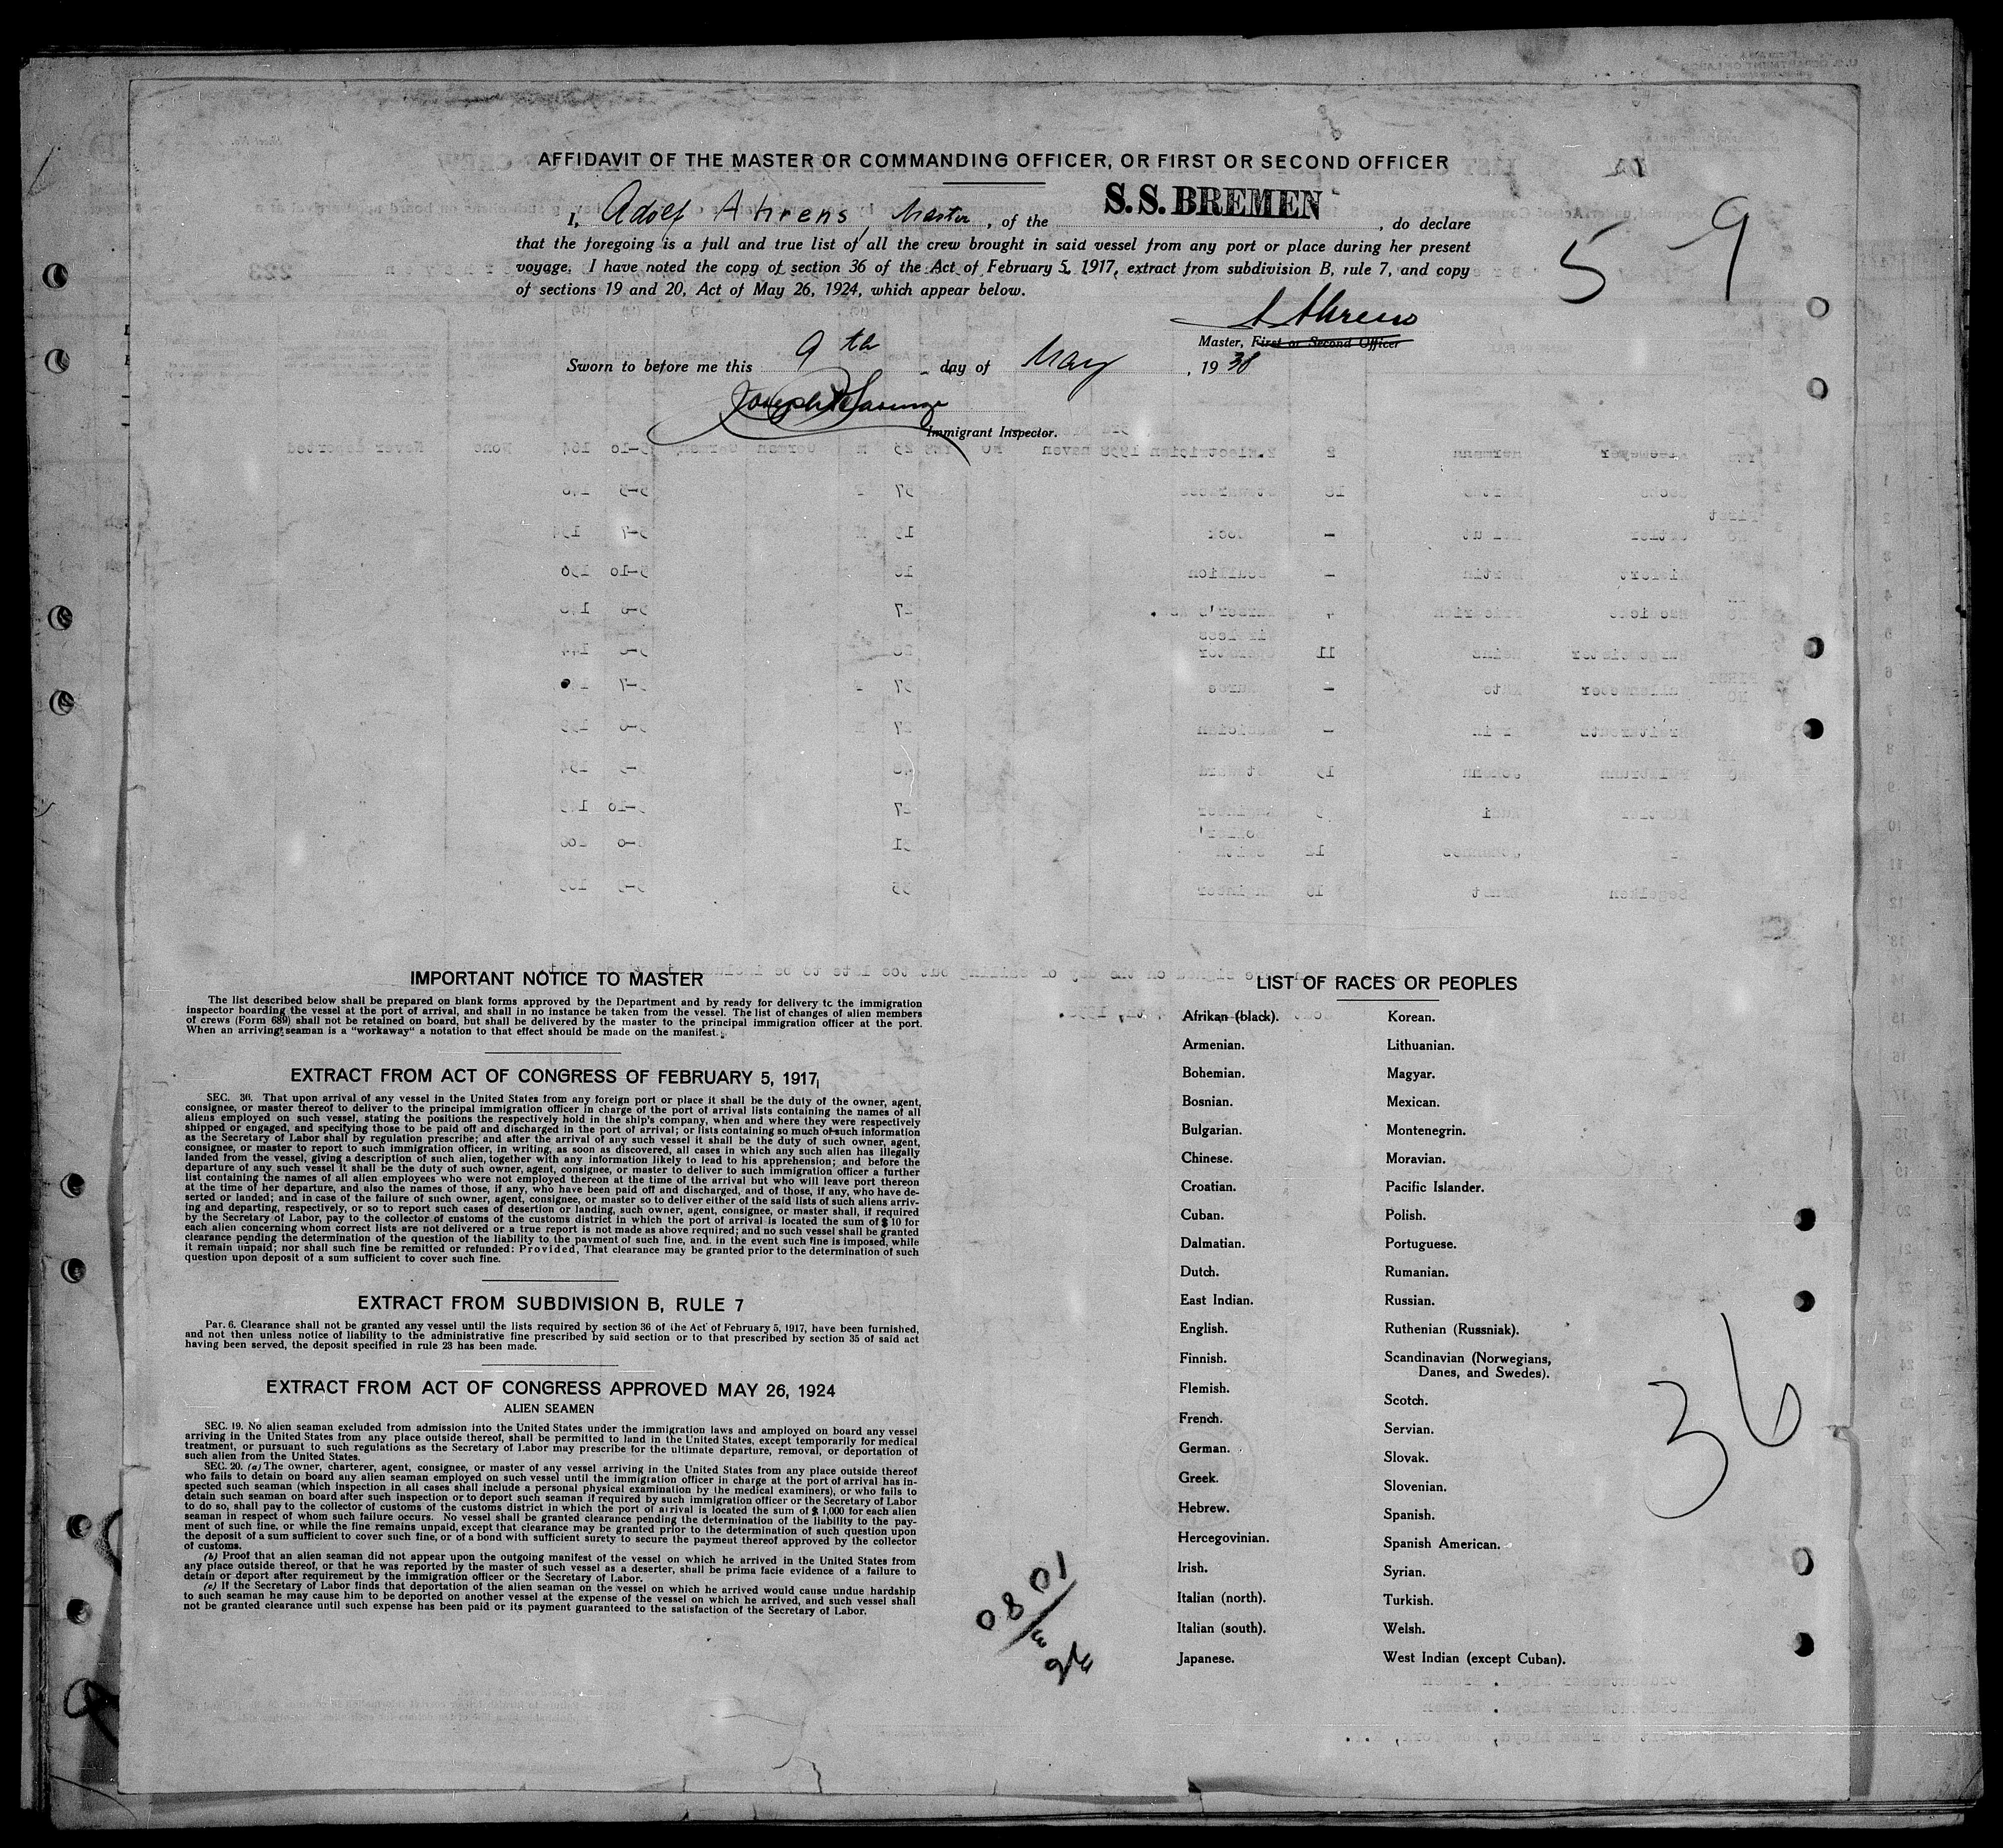 AFFIDAVIT OF THE MASTER OR COMMANDING OFFICER, OR FIRST OR SECOND OFFICER
I, Adolf Ahrens, Master, of the S.S. BREMEN, do declare
that the foregoing is a full and true list of all the crew brought in said vessel from any port or place during her present
voyage. I have noted the copy of section 36 of the Act of February 5, 1917, extract from subdivision B, rule 7, and copy
of sections 19 and 20, Act of May 26, 1924, which appear below.
5-9
A Ahrens
Master, First or Second Officer
Sworn to before me this 9th day of May, 1938
Joseph
Immigrant Inspector.
IMPORTANT NOTICE TO MASTER
The list described below shall be prepared on blank forms approved by the Department and by ready for delivery to the immigration
inspector boarding the vessel at the port of arrival, and shall in no instance be taken from the vessel. The list of changes of alien members
of crews (Form 689) shall not be retained on board, but shall be delivered by the master to the principal immigration officer at the port.
When an arriving seaman is a "workaway" a notation to that effect should be made on the manifest.
EXTRACT FROM ACT OF CONGRESS OF FEBRUARY 5, 1917,
SEC. 36. That upon arrival of any vessel in the United States from any foreign port or place it shall be the duty of the owner, agent,
consignee, or master thereof to deliver to the principal immigration officer in charge of the port of arrival lists containing the names of all
aliens employed on such vessel, stating the positions the respectively hold in the ship's company, when and where they were respectively
shipped or engaged, and specifying those to be paid off and discharged in the port of arrival; or lists containing so much of such information
as the Secretary of Labor shall by regulation prescribe; and after the arrival of any such vessel it shall be the duty of such owner, agent,
consignee, or master to report to such immigration officer, in writing, as soon as discovered, all cases in which any such alien has illegally
landed from the vessel, giving a description of such alien, together with any information likely to lead to his apprehension; and before the
departure of any such vessel it shall be the duty of such owner, agent, consignee, or master to deliver to such immigration officer a further
list containing the names of all alien employees who were not employed thereon at the time of the arrival but who will leave port thereon
at the time of her departure, and also the names of those, if any, who have been paid off and discharged, and of those, if any, who have de-
serted or landed; and in case of the failure of such owner, agent, consignee, or master so to deliver either of the said lists of such aliens arriv-
ing and departing, respectively, or so to report such cases of desertion or landing, such owner, agent, consignee, or master shall, if required
by the Secretary of Labor, pay to the collector of customs of the customs district in which the port of arrival is located the sum of $ 10 for
each alien concerning whom correct lists are not delivered or a true report is not made as above required; and no such vessel shall be granted
clearance pending the determination of the question of the liability to the payment of such fine, and. in the event such fine is imposed, while
it remain unpaid; nor shall such fine be remitted or refunded: Provided, That clearance may be granted prior to the determination of such
question upon deposit of a sum sufficient to cover such fine.
EXTRACT FROM SUBDIVISION B, RULE 7
Par. 6. Clearance shall not be granted any vessel until the lists required by section 36 of the Act of February 5, 1917, have been furnished,
and not then unless notice of liability to the administrative fine prescribed by said section or to that prescribed by section 35 of said act
having been served, the deposit specified in rule 23 has been made.
EXTRACT FROM ACT OF CONGRESS APPROVED MAY 26, 1924
ALIEN SEAMEN
SEC. 19. No alien seaman excluded from admission into the United States under the immigration laws and amployed on board any vessel
arriving in the United States from any place outside thereof, shall be permitted to land in the United States, except temporarily for medical
treatment, or pursuant to such regulations as the Secretary of Labor may prescribe for the ultimate departure, removal, or deportation of
such alien from the United States.
SEC. 20. (a) The owner, charterer, agent, consignee, or master of any vessel arriving in the United States from any place outside thereof
who fails to detain on board any alien seaman employed on such vessel until the immigration officer in charge at the port of arrival has in-
spected such seaman (which inspection in all cases shall include a personal physical examination by the medical examiners), or who fails to
detain such seaman on board after such inspection or to deport such seaman if required by such immigration officer or the Secretary of Labor
to do so, shall pay to the collector of customs of the customs district in which the port of arrival is located the sum of $ 1,000 for each alien
seaman in respect of whom such failure occurs. No vessel shall be granted clearance pending the determination of the liability to the pay-
ment of such fine. or while the fine remains unpaid, except that clearance may be granted prior to the determination of such question upon
the deposit of a sum sufficient to cover such fine, or of a bond with sufficient surety to secure the payment thereof approved by the collector
of customs.
(b) Proof that an alien seaman did not appear upon the outgoing manifest of the vessel on which he arrived in the United States from
any place outside thereof, or that he was reported by the master of such vessel as a deserter, shall be prima facie evidence of a failure to
detain or deport after requirement by the immigration officer or the Secretary of Labor.
(c) If the Secretary of Labor finds that deportation of the alien seaman on the vessel on which he arrived would cause undue hardship
to such seaman he may cause him to be deported on another vessel at the expense of the vessel on which he arrived, and such vessel shall
not be granted clearance until such expense has been paid or its payment guaranteed to the satisfaction of the Secretary of Labor.
LIST OF RACES OR PEOPLES
Afrikan (black).
Armenian.
Bohemian.
Bosnian.
Bulgarian.
Chinese.
Croatian.
Cuban.
Dalmatian.
Dutch.
East Indian.
English.
Finnish.
Flemish.
French.
German.
Greek.
Hebrew.
Hercegovinian.
Irish.
Italian (north).
Italian (south).
Japanese.
Korean.
Lithuanian.
Magyar.
Mexican.
Montenegrin.
Moravian.
Pacific Islander.
Polish.
Portuguese.
Rumanian.
Russian.
Ruthenian (Russniak).
Scandinavian (Norwegians,
Danes, and Swedes).
Scotch.
Servian.
Slovak.
Slovenian.
Spanish.
Spanish American.
Syrian.
Turkish.
Welsh.
West Indian (except Cuban).
36